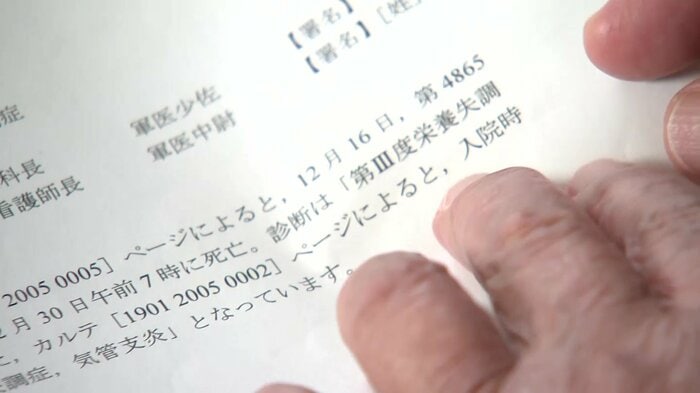 【署名】
【署名】［姓
症
軍医少佐
科長
軍医中尉
看護師長
2005 0005］ページによると，12月16日，第4865
月30日午前7時に死亡。診断は「第Ⅲ度栄養失調
，カルテ［1901 2005 0002］ページによると，入院時
調症，気管支炎」となっています。